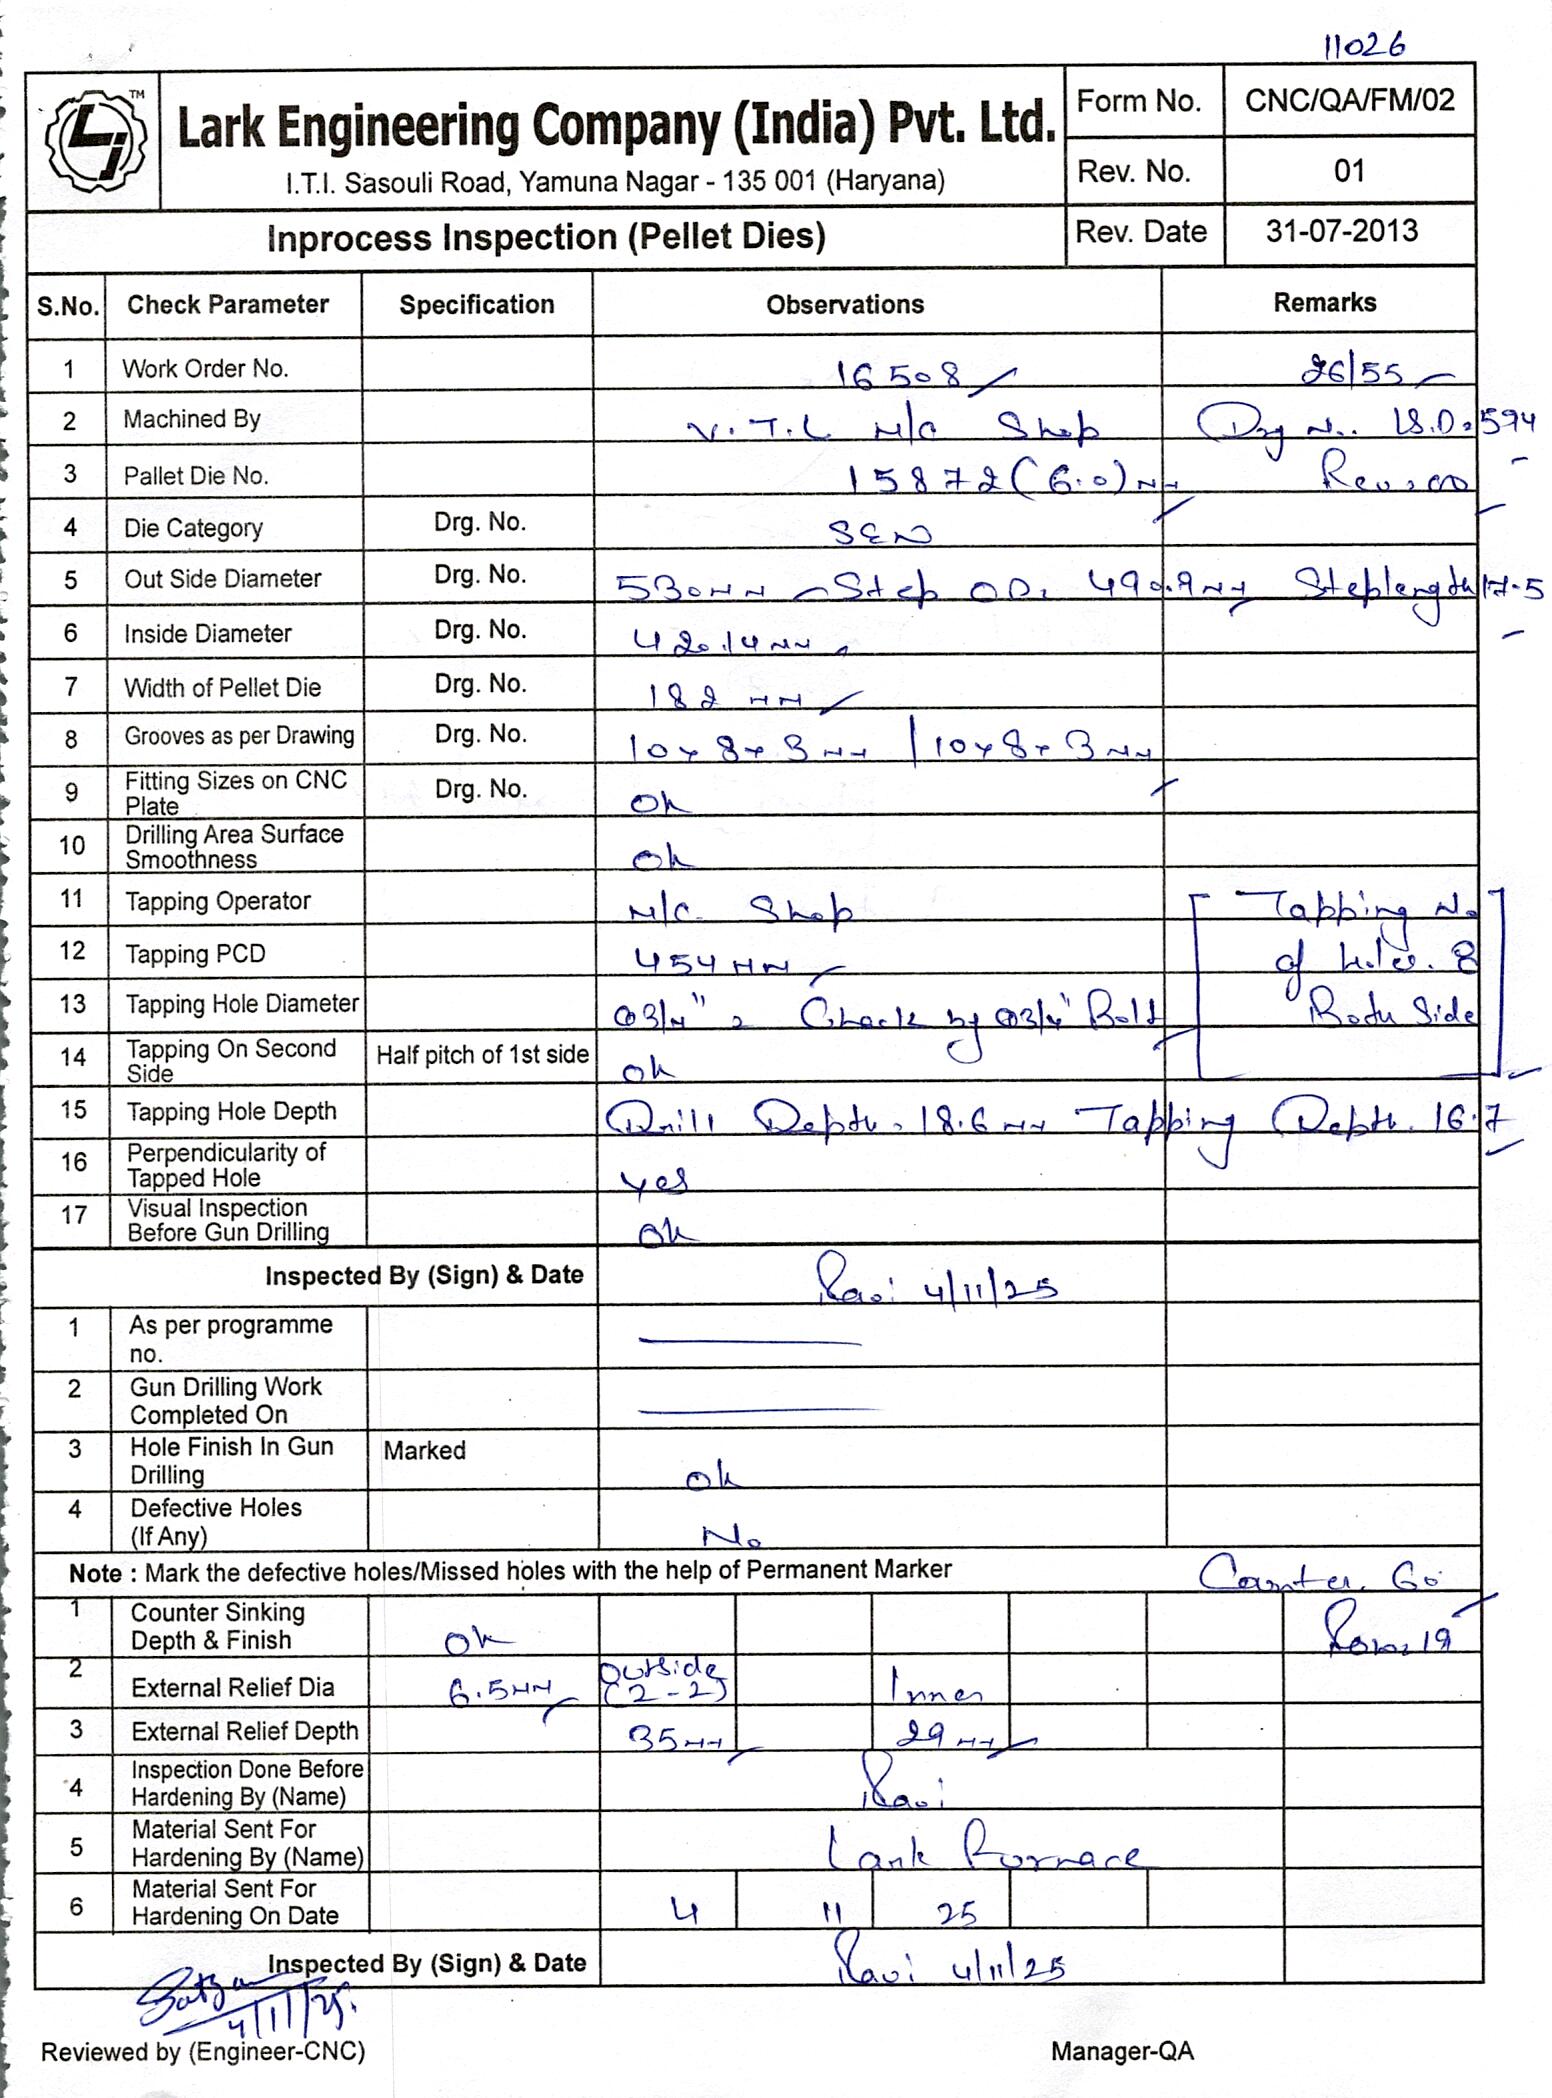 11026
TM
Lark Engineering Company (India) Pvt. Ltd.
I.T.I. Sasouli Road, Yamuna Nagar - 135 001 (Haryana)
Form No. CNC/QA/FM/02
Rev. No. 01
Inprocess Inspection (Pellet Dies) Rev. Date 31-07-2013
S.No. Check Parameter Specification Observations Remarks
1 Work Order No. 16508 26/55
2 Machined By V.T.L M/C Shop Drg No. 594
3 Pallet Die No. 15872 (6.0) MM Rev. 00
4 Die Category Drg. No. SEN
5 Out Side Diameter Drg. No. 530MM Step OD. 490.9MM Steplength 17.5
6 Inside Diameter Drg. No. 420.14MM
7 Width of Pellet Die Drg. No. 182 MM
8 Grooves as per Drawing Drg. No. 10x8x3MM / 10x8x3MM
9 Fitting Sizes on CNC Plate Drg. No. Ok
10 Drilling Area Surface Smoothness Ok
11 Tapping Operator M/C. Shop Tapping No
12 Tapping PCD 454MM of holes. 8
13 Tapping Hole Diameter Ø3/4" Check by Ø3/4" Bolt Both Side
14 Tapping On Second Side Half pitch of 1st side Ok
15 Tapping Hole Depth Drill Depth. 18.6MM Tapping Depth. 16.7
16 Perpendicularity of Tapped Hole yes
17 Visual Inspection Before Gun Drilling Ok
Inspected By (Sign) & Date Ravi 4/11/25
1 As per programme no.
2 Gun Drilling Work Completed On
3 Hole Finish In Gun Drilling Marked Ok
4 Defective Holes (If Any) No
Note : Mark the defective holes/Missed holes with the help of Permanent Marker Counter. 60
1 Counter Sinking Depth & Finish Ok Row. 19
2 External Relief Dia 6.5MM Outside (2-2) Inner
3 External Relief Depth 35MM 29MM
4 Inspection Done Before Hardening By (Name) Ravi
5 Material Sent For Hardening By (Name) Lark Furnace
6 Material Sent For Hardening On Date 4 11 25
Inspected By (Sign) & Date Ravi 4/11/25
4/11/25.
Reviewed by (Engineer-CNC) Manager-QA